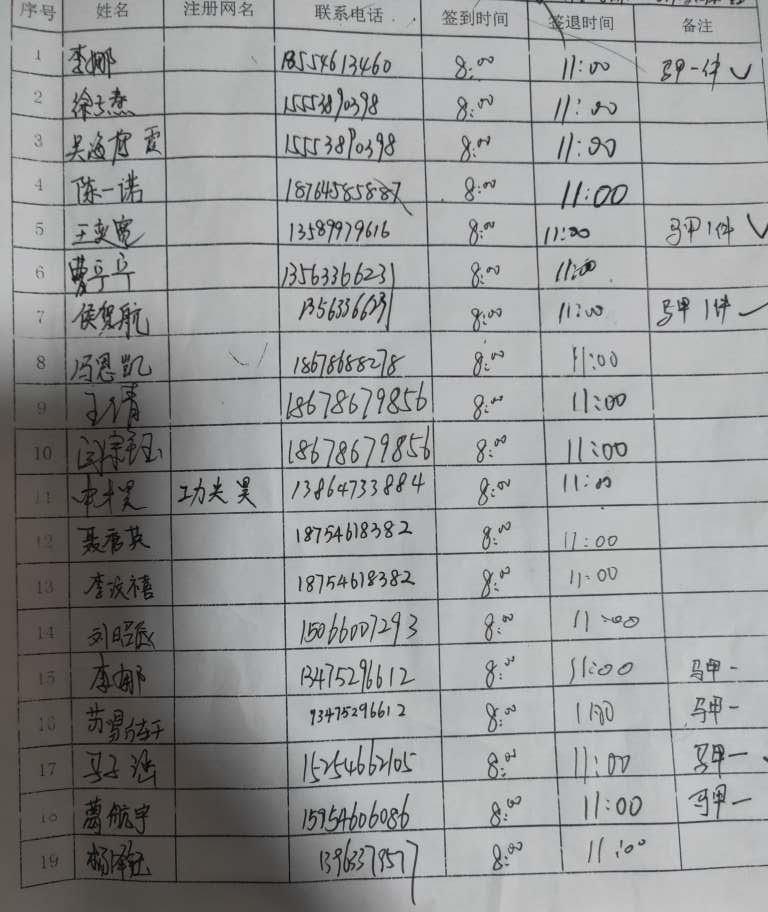 序号 姓名 注册网名 联系电话 签到时间 签退时间 备注
1 李娜 13554613460 8:00 11:00 马甲一件 ✓
2 徐 15553890398 8:00 11:00
3 吴海 霞 15553890398 8:00 11:00
4 陈一诺 18764585887 8:00 11:00
5 王 13589979616 8:00 11:00 马甲1件 ✓
6 曹 13563366231 8:00 11:00
7 侯贺航 8:00 11:00 马甲1件 ✓
8 冯恩凯 18678688278 8:00 11:00
9 王倩 18678679856 8:00 11:00
10 闫 玉 18678679856 8:00 11:00
11 昊 功夫昊 13864733884 8:00 11:00
12 聂 英 18754618382 8:00 11:00
13 李 禧 18754618382 8:00 11:00
14 刘昭 15066007293 8:00 11:00
15 李娜 13475296612 8:00 11:00 马甲一
16 苏 13475296612 8:00 马甲一
17 马子 15254662105 8:00 11:00 马甲一
18 葛航宇 15754606086 8:00 11:00 马甲一
19 杨 钰 8:00 11:00